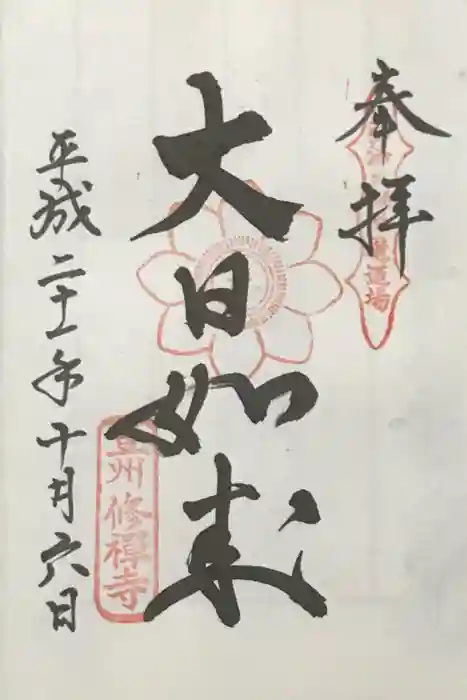 奉拝
道場
大日如来
豆州修禅寺
平成二十一年十月六日